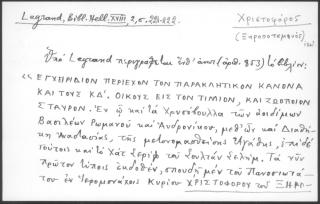 Legrand, Bibl. Hell. XVIII 2, σ. 221-222.
Χριστοφόρος
(Ξηροποταμηνός)
Ὑπὸ Legrand περιγράφεται ὑπ' ἀριθ. 853) τὸ βιβλίον:
«ΕΓΧΕΙΡΙΔΙΟΝ ΠΕΡΙΕΧΟΝ ΤΟΝ ΠΑΡΑΚΛΗΤΙΚΟΝ ΚΑΝΟΝΑ
ΚΑΙ ΤΟΥΣ ΚΔ΄. ΟΙΚΟΥΣ ΕΙΣ ΤΟΝ ΤΙΜΙΟΝ, ΚΑΙ ΖΩΟΠΟΙΟΝ
ΣΤΑΥΡΟΝ. Ἐν ᾧ καὶ τὰ Χρυσόβουλλα τῶν ἀοιδίμων
Βασιλέων Ρωμανοῦ καὶ Ἀνδρονίκου, μεθ' ὧν καὶ Διαθήκη
Ἀναστασίας, τῆς μετονομασθείσης Ἀγάθης,
τούτοις καὶ τὸ Χὰτ Σερὶφ τοῦ Σουλτὰν Σελήμ. Τὰ νῦν
πρῶτον τύποις ἐκδοθέν, σπουδῇ μὲν τοῦ Πανοσιωτά-
του ἐν Ἱερομονάχοις Κυρίου ΧΡΙΣΤΟΦΟΡΟΥ τοῦ ΞΗΡΟ-